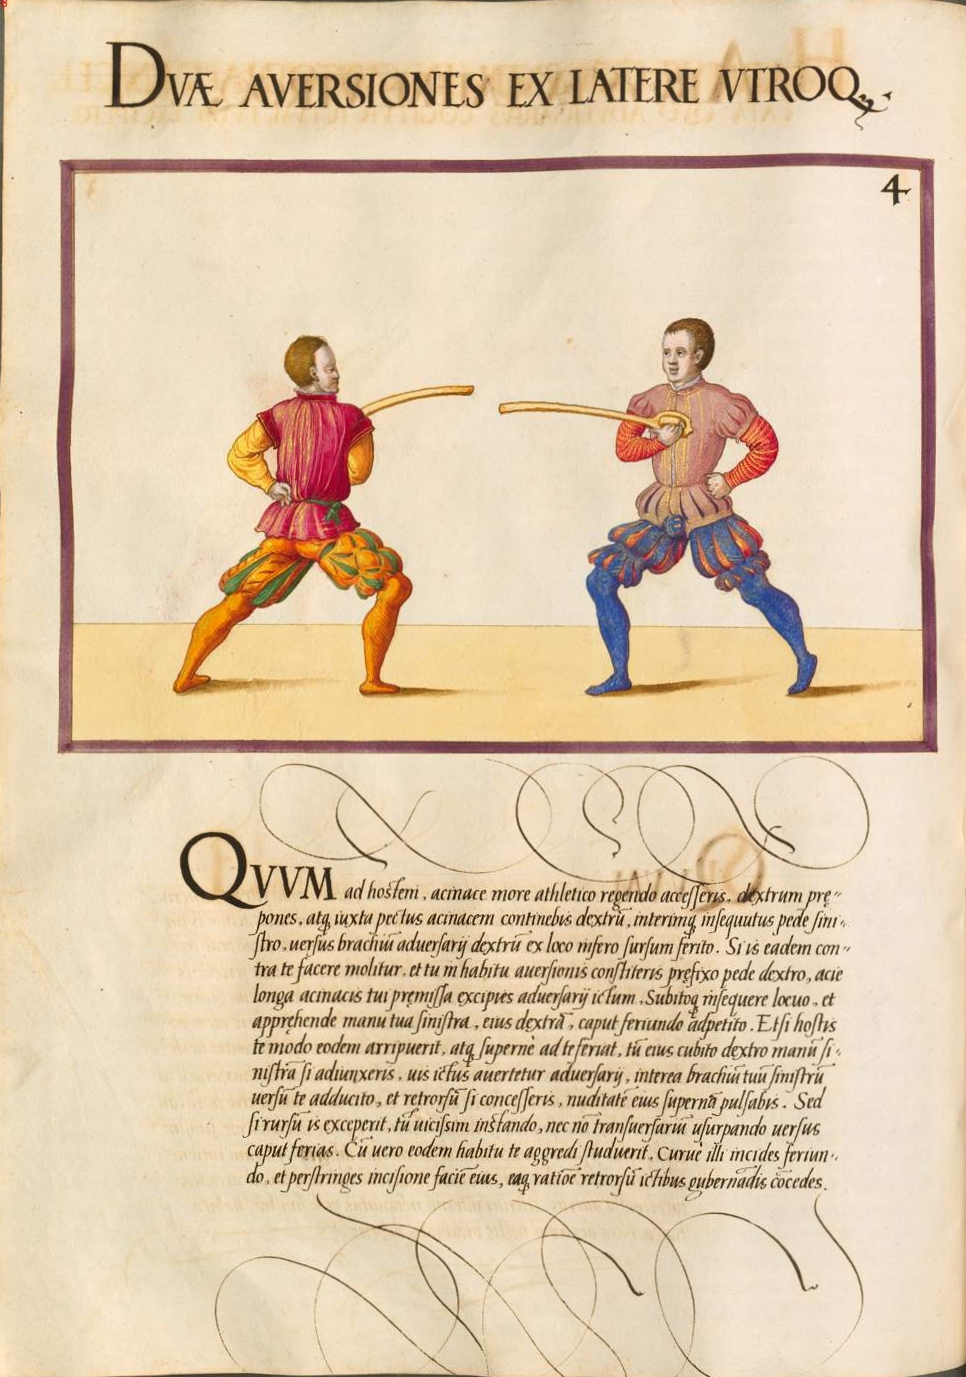 DVÆ AVERSIONES EX LATERE VTROQꝫ
4
QVVM ad hostem, acinace more athletico regendo accesseris, dextrum prę-
pones, atqꝫ iuxta pectus acinacem continebis dextrũ, interimqꝫ insequutus pede sini-
stro, uersus brachiũ aduersarij dextrũ ex loco infero sursum ferito. Si is eadem con-
tra te facere molitur, et tu in habitu auersionis constiteris pręfixo pede dextro, acie
longa acinacis tui pręmissa excipies aduersarij ictum, Subitoqꝫ insequere loeuo, et
appręhende manu tua sinistra, eius dextrã, caput feriundo adpetito. Et si hostis
te modo eodem arripuerit, atqꝫ supernè ad te feriat, tũ eius cubito dextro manũ si-
nistrã si adiunxeris, uis ictus auertetur aduersarij, interea brachiũ tuũ sinistrũ
uersũ te adducito, et retrorsũ si concesseris, nuditatẽ eius supernã pulsabis. Sed
si rursũ is exceperit, tũ uicissim instando, nec nõ transuersariũ usurpando uersus
caput ferias. Cũ uero eodem habitu te aggredi studuerit, curuè illi incides feriun-
do, et perstringes incisione faciẽ eius, eaqꝫ ratiõe retrorsũ ictibus gubernãdis cõcedes.